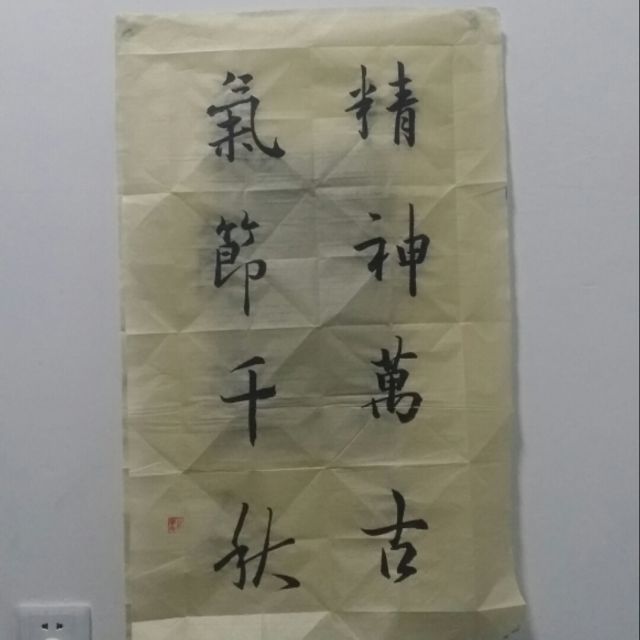 精神萬古
氣節千秋